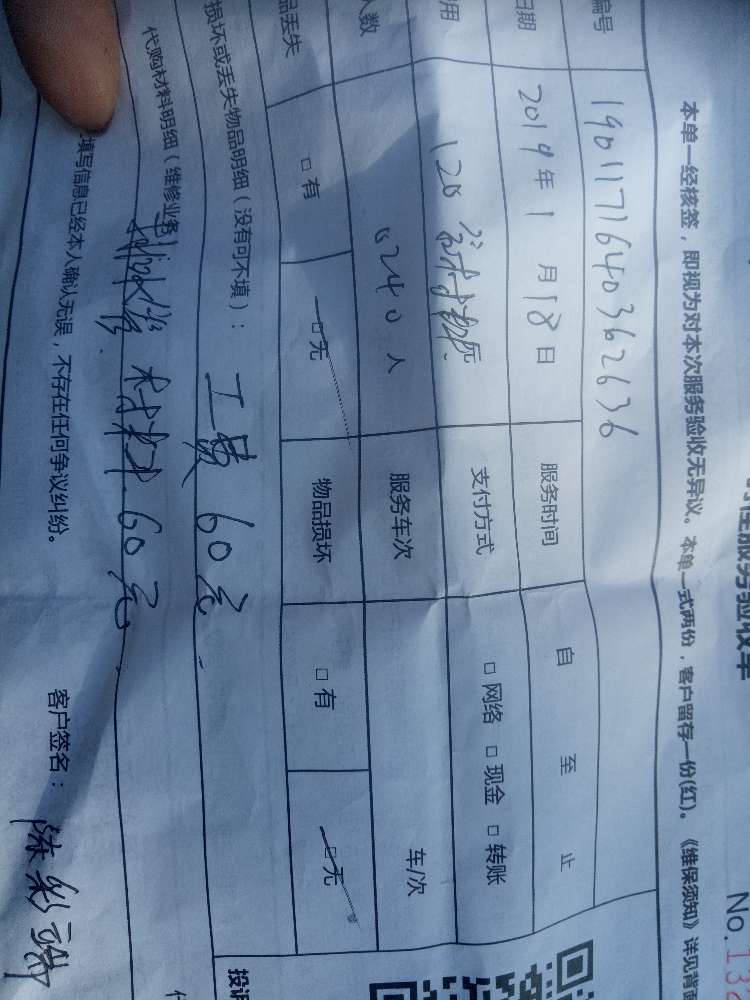 No.13
性服务验收单
本单一经核签，即视为对本次服务验收无异议。本单一式两份，客户留存一份(红)。《维保须知》详见背面
编号 1901171640362636
日期 2019年1月18日 服务时间 自 至 止
用 120 元 支付方式 □网络 □现金 □转账
人数 0240人 服务车次 车/次
品丢失 □有 □无 物品损坏 □有 □无
损坏或丢失物品明细（没有可不填）： 工费 60元
代购材料明细（维修业务 材料 60元
填写信息已经本人确认无误，不存在任何争议纠纷。
客户签名：
投诉
代